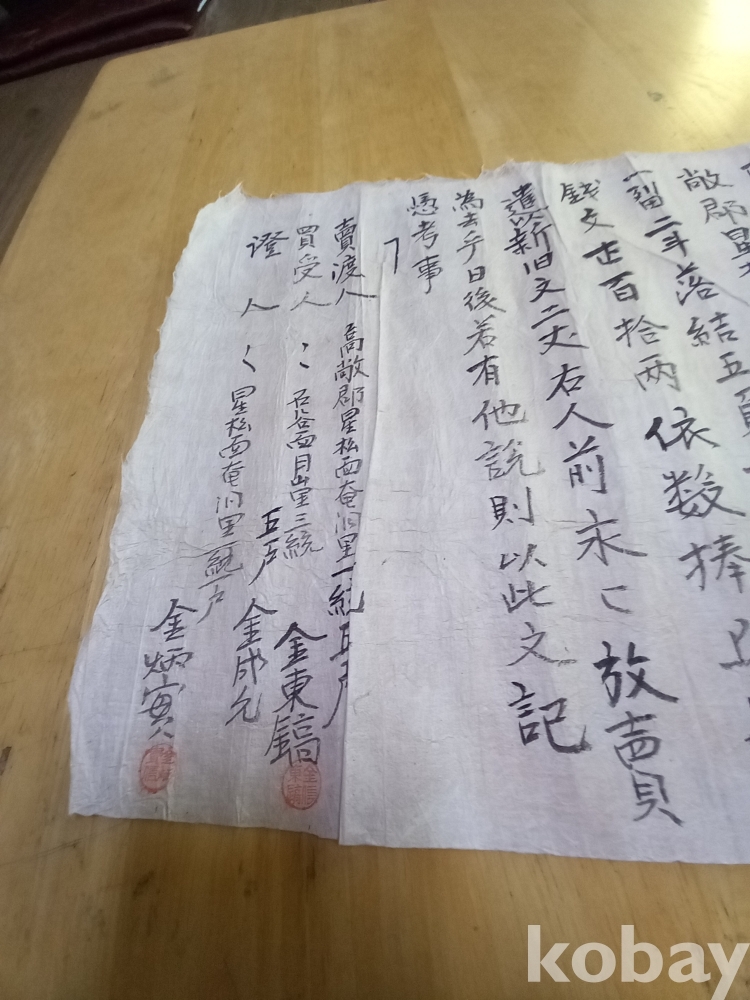 敞郡星
畓二斗落結五
錢文壱百拾両依数捧
遣以新旧文二丈右人前永〻放賣
為去乎日後若有他説則以此文記
憑考事
賣渡人 高敞郡星松面奄洞里一統五戸 金東鎬
買受人 〻 石谷面月山里三統五戸 金成允
證人 〻 星松面奄洞里一統一戸 金炳寅
kobay